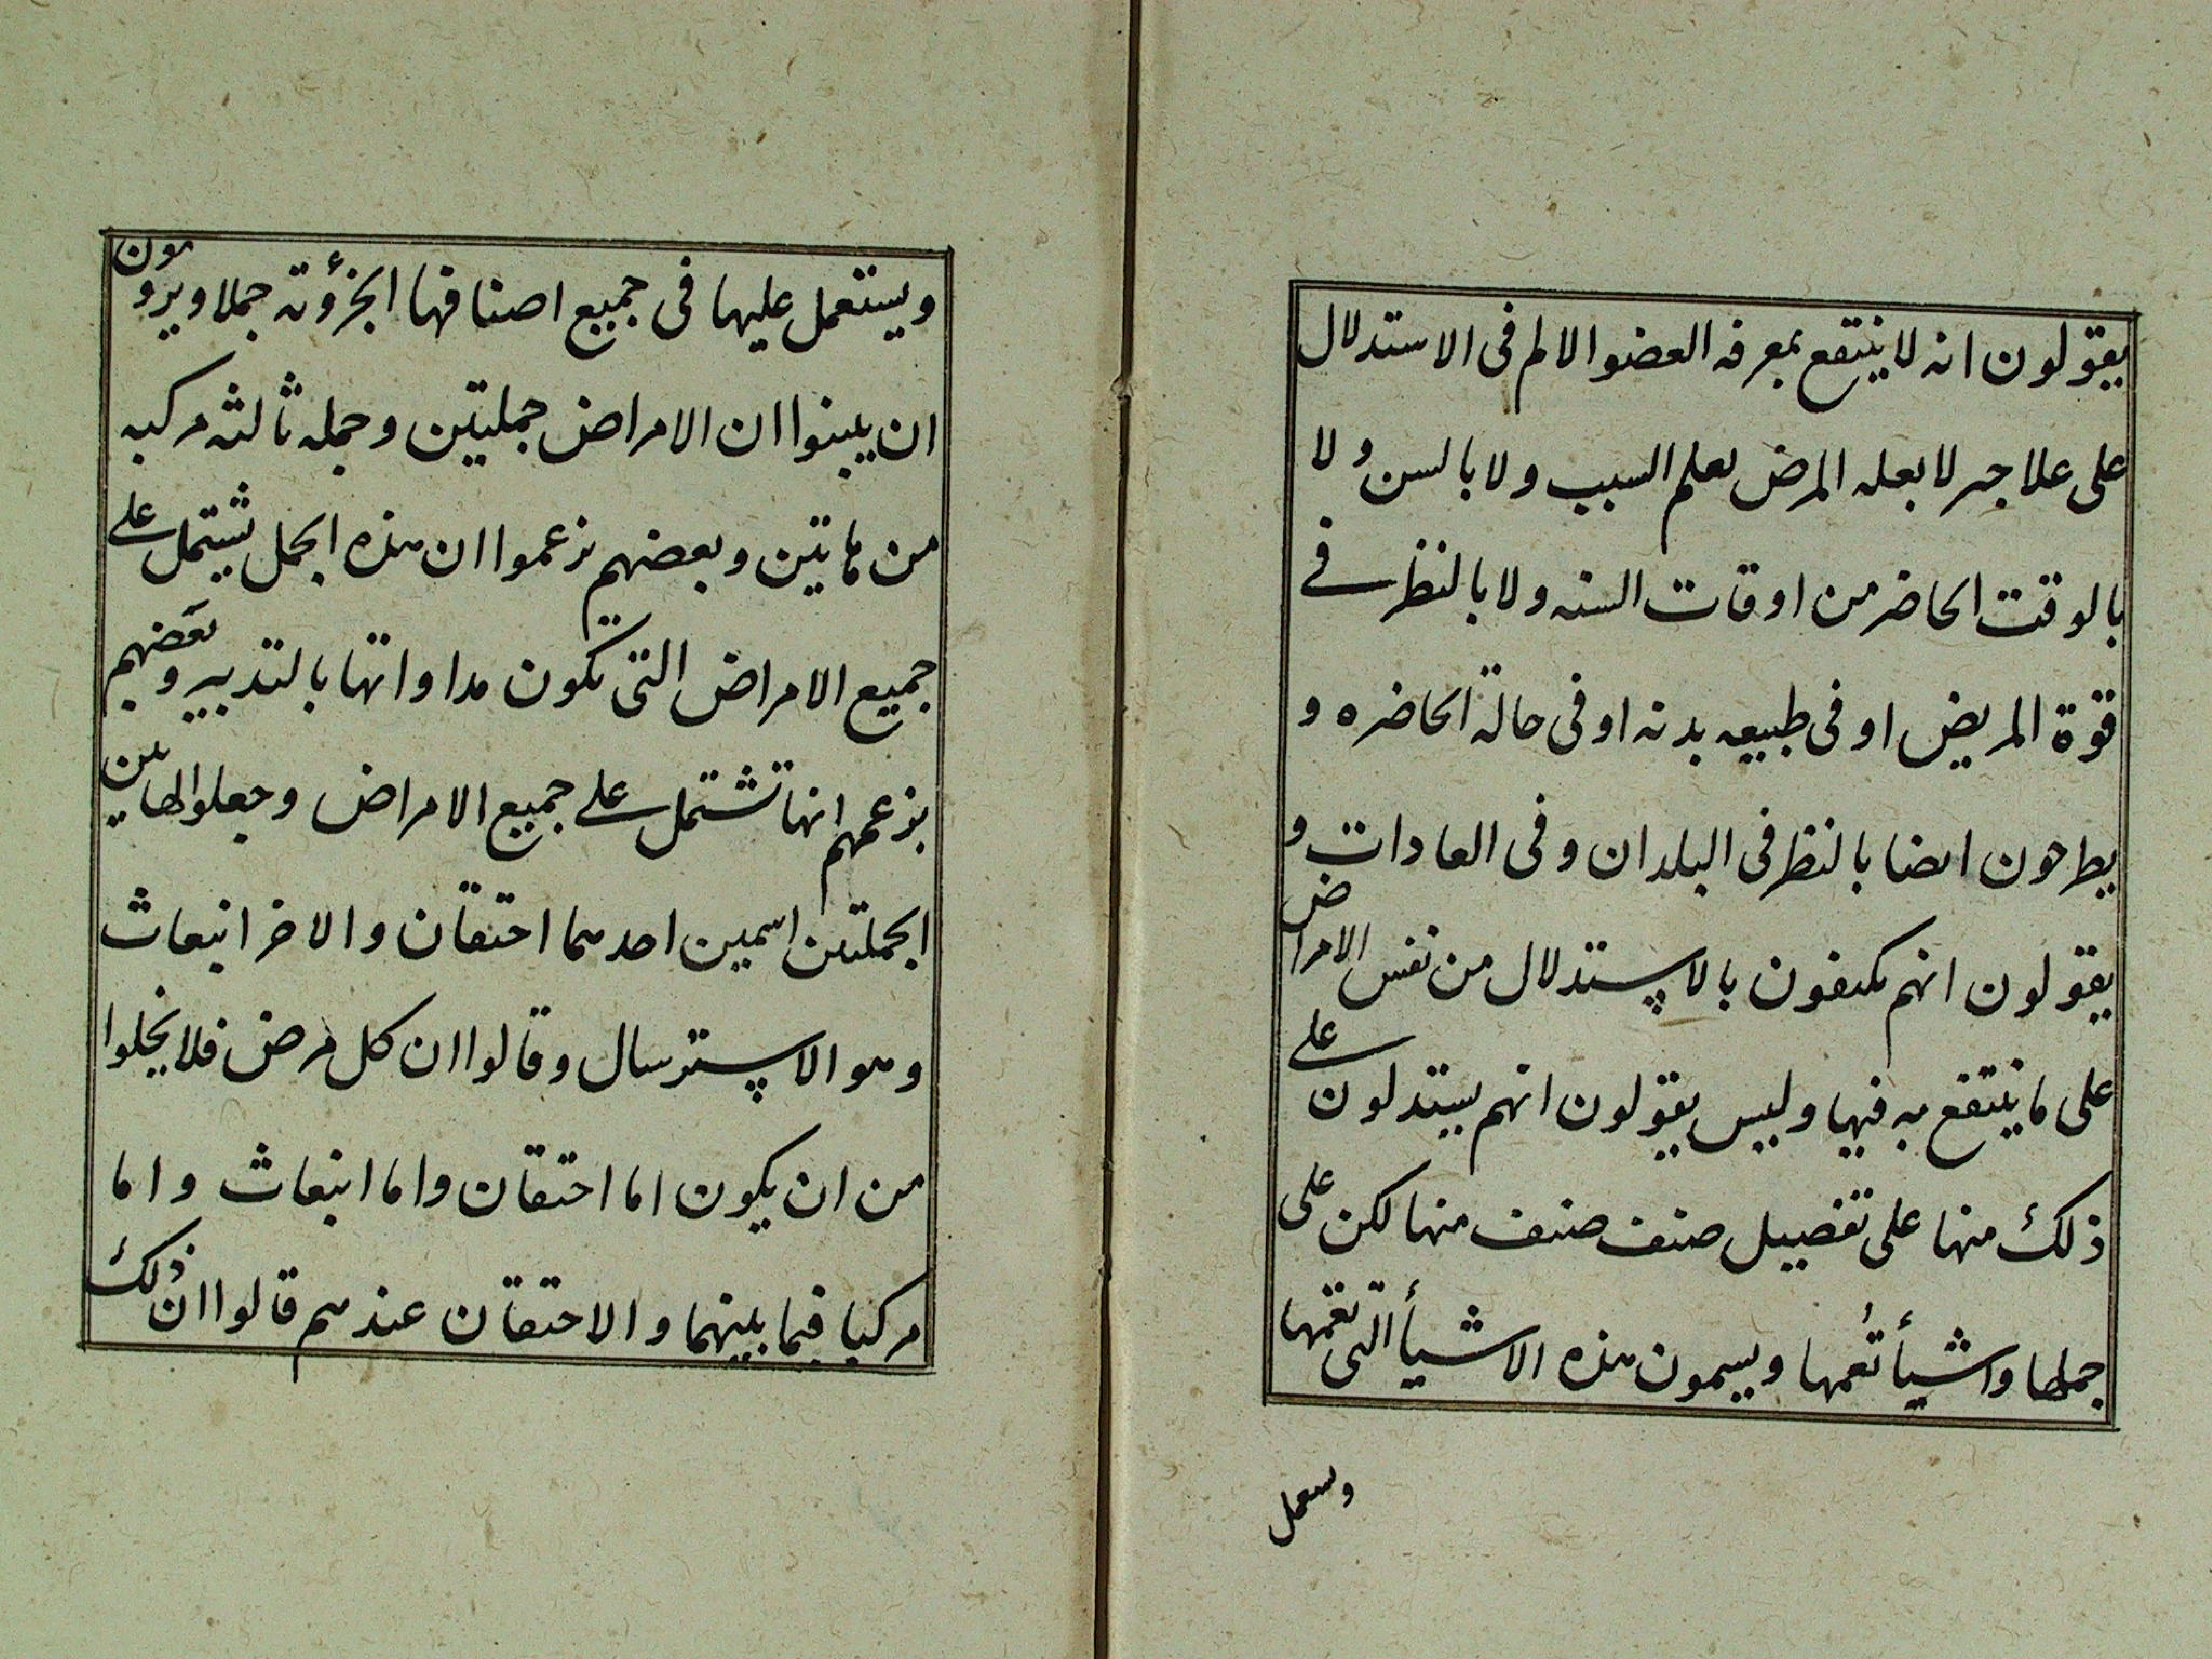 يقولون انه لا ينتفع بمعرفه العضو الالم فى الاستدلال
على علاجه لا بعله المرض بعلم السبب ولا بالسن ولا
بالوقت الحاضر من اوقات السنه ولا بالنظر فے
قوة المريض او فى طبيعه بدنه او فى حالة الحاضره و
يطرحون ايضا بالنظر فى البلدان وفى العادات و
يقولون انهم يكتفون بالاستدلال من نفس الامراض
على ما ينتفع به فيها وليس يقولون انهم يستدلون علے
ذلك منها على تفصيل صنف صنف منها لكن على
جملها واشيأ تُعمها ويسمون هذه الاشيأ التى تعمها
وسعمل
ويستعمل عليها فى جميع اصنافها الجزؤته جملا ويرومون
ان يبينوا ان الامراض جملتين وجمله ثالثه مركبه
من هاتين وبعضهم يزعموا ان هذه الجمل يشتمل علے
جميع الامراض التى يكون مداواتها بالتدبير وبعضهم
يزعمهم انها تشتمل علے جميع الامراض وجعلوا لهاتين
الجملتين اسمين احدهما احتقان والاخر انبعاث
وهو الاسترسال وقالوا ان كل مرض فلا يخلوا
من ان يكون اما احتقان واما انبعاث واما
مركبا فيما بينهما والاحتقان عندهم قالوا ان ذلك